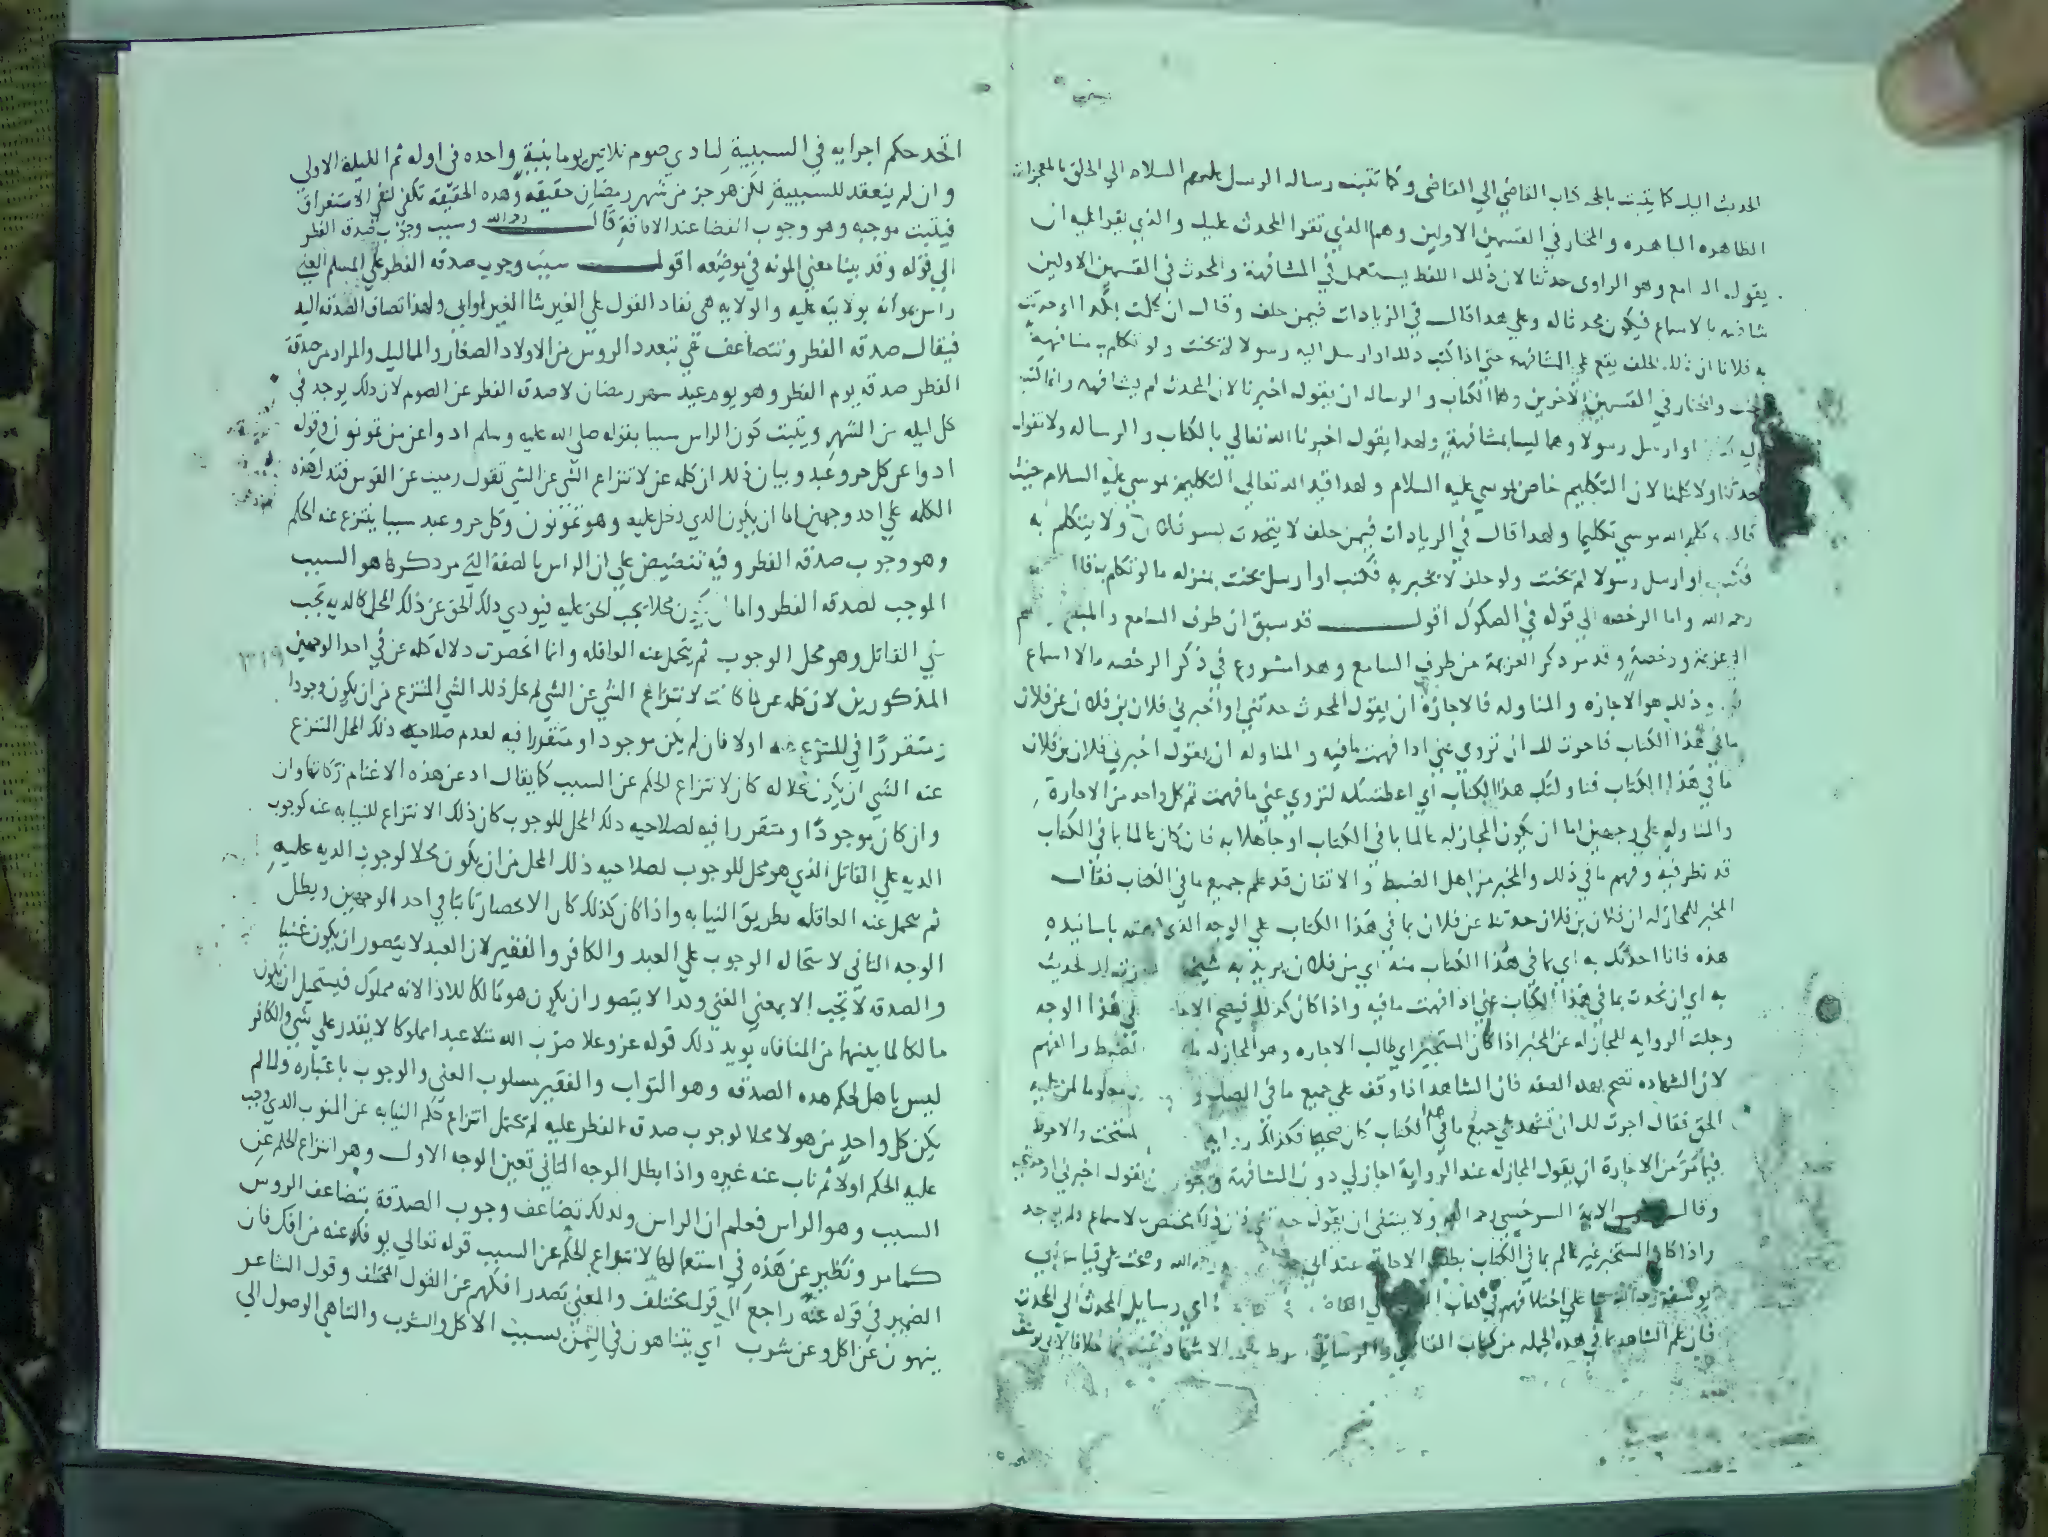 الحديث اليك كما يثبت بالحجه كتاب القاضي الي القاضي وكما تثبت رساله الرسل عليهم السلام الي الخلق بالمعجزات
الظاهره الباهره والمختار في القسمين الاولين وهما الذي تقرا المحدث عليك والذي يقرا عليه ان
يقول السامع وهو الراوي حدثنا لان ذلك اللفظ يستعمل في المشافهة والمحدث في القسمين الاولين
شافهه بالاسماع فيكون محدثا له وعلي هذا قال في الزيادات فيمن حلف وقال ان كلمت
به فلانا ان ذلك الحلف يقع علي المشافهة حتي اذا كتب ذلك او ارسل اليه رسولا لم يحنث ولو تكلم به مشافهة
يحنث والمختار في القسمين الاخرين وهما الكتاب والرساله ان يقول اخبرنا لان المحدث لم يشافهه وانما كتب
اليه او ارسل رسولا وهما ليسا بمشافهة ولهذا يقول اخبرنا الله تعالي بالكتاب والرساله ولا تقول
حدثنا ولا كلمنا لان التكليم خاص لموسي عليه السلام ولهذا قيد الله تعالي التكليم بموسي عليه السلام حيث
قال وكلم الله موسي تكليما ولهذا قال في الزيادات فيمن حلف لا يتحدث بسر فلان ولا يتكلم به
فكتب او ارسل رسولا لم يحنث ولو حلف لا يخبر به فكتب او ارسل يحنث بمنزله ما لو تكلم به قال
رحمه الله واما الرخصه الي قوله في الصكوك اقول قد سبق ان طرف السامع والمبلغ
الي عزيمة ورخصة وقد مر ذكر العزيمة من طرف السامع وهذا مشروع في ذكر الرخصه مالا اسماع
وذلك هو الاجازه والمناوله فالاجازة ان يقول المحدث حدثني او اخبرني فلان بن فلان عن فلان
ما في هذا الكتاب فاجزت لك ان تروي عني اذا فهمت ما فيه والمناوله ان يقول اخبرني فلان بن فلان
ما في هذا الكتاب فناولتك هذا الكتاب اي اعطيتكه لتروي عني ما فهمت ثم كل واحد من الاجازة
والمناوله علي وجهين اما ان يكون المجاز له عالما بما في الكتاب او جاهلا به فان كان عالما بما في الكتاب
قد نظر فيه وفهم ما في ذلك والمخبر من اهل الضبط والاتقان قد علم جميع ما في الكتاب فقال
المخبر للمجاز له ان فلان بن فلان حدثنا عن فلان بما في هذا الكتاب علي الوجه الذي باسانيده
هذه فانا احدثك به اي بما في هذا الكتاب منه اي من فلان يريد به شيخه لك الحديث
به اي ان تحدث بما في هذا الكتاب عني اذا فهمت ما فيه واذا كان كذلك فيصح علي هذا الوجه
وحلت الروايه للمجاز له عن المخبر اذا كان المستجيز اي طالب الاجازه وهو المجاز له الضبط والفهم
لان الشهاده تصح بهذه الصفه فان الشاهد اذا وقف علي جميع ما في الصك معلوما لمن عليه
الحق فقال اجزت لك ان تشهد علي جميع ما في هذا الكتاب كان صحيحا فكذلك روايه المستحب والاحوط
فيما مر من الاجازة ان يقول المجاز له عند الرواية اجاز لي دون المشافهة ان يقول اخبرني او حدثني
وقال شمس الايمه السرخسي رحمه الله ولا ينبغي ان يقول حدثني فان ذلك مختص بالاسماع ولم يوجد
واذا كان المستجيز غير عالم بما في الكتاب بطلت الاجازة عند ابي رحمه الله وصحت علي قياس ابي
يوسف رحمه الله علي اختلافهم في كتاب القاضي الي القاضي اي رسايل المحدث الي المحدث
فان علم الشاهد بما في هذه الجمله من كتاب القاضي والرسايل شرط خلافا لابي يوسف
اتحد حكم اجزايه في السببية لتادي صوم ثلاثين يوما بنية واحده في اوله ثم الليلة الاولي
وان لم ينعقد للسببية لكن هو جز من شهر رمضان حقيقه وهذه الحقيقه تكفي لنفي الاستغراق
فيثبت موجبه وهو وجوب القضا عند الافاقة قال رحمه الله وسبب وجوب صدقه الفطر
الي قوله وقد بينا معني المونه في موضعه اقول سبب وجوب صدقه الفطر علي المسلم الغني
راس يمونه بولايته عليه والولايه هي نفاد القول علي الغير شا الغير او ابي ولهذا تضاف الصدقه اليه
فيقال صدقه الفطر وتتضاعف بتعدد الروس من الاولاد الصغار والمماليك والمراد من صدقة
الفطر صدقه يوم الفطر وهو يوم عيد شهر رمضان لا صدقه الفطر عن الصوم لان ذلك يوجد في
كل ليله من الشهر ويثبت كون الراس سببا بقوله صلي الله عليه وسلم ادوا عن من تمونون وقوله
ادوا عن كل حر وعبد وبيان ذلك ان كلمه عن لانتزاع الشي عن الشي تقول رميت عن القوس فتدل هذه
الكلمه علي احد وجهين اما ان يكون الذي دخل عليه وهو تمونون وكل حر وعبد سببا ينتزع عنه الحكم
وهو وجوب صدقه الفطر وفيه تنصيص علي ان الراس بالصفة التي مر ذكرها هو السبب
الموجب لصدقه الفطر واما ان يكون محلا يجب الحق عليه فيودي ذلك الحق عن ذلك المحل كالديه تجب
علي القاتل وهو محل الوجوب ثم يتحمل عنه العاقله وانما انحصرت دلاله كلمه عن في احد الوجهين
٣١٩
المذكورين لان كلمه عن لما كانت لانتزاع الشي عن الشي لم يخل ذلك الشي المنتزع من ان يكون موجودا
ومتقررا في المنتزع عنه اولا فان لم يكن موجودا ومتقررا فيه لعدم صلاحيه ذلك المحل المنتزع
عنه الشي ان يكون محلا له كان لانتزاع الحكم عن السبب كما يقال اد عن هذه الاغنام زكاتها وان
وان كان موجودا ومتقررا فيه لصلاحيه ذلك المحل للوجوب كان ذلك الانتزاع للنيابه عنه كوجوب
الديه علي القاتل الذي هو محل للوجوب لصلاحيه ذلك المحل من ان يكون محلا لوجوب الديه عليه
ثم يتحمل عنه العاقله بطريق النيابه واذا كان كذلك كان الانحصار ثابتا في احد الوجهين وبطل
الوجه الثاني لاستحاله الوجوب علي العبد والكافر والفقير لان العبد لا يتصور ان يكون غنيا
والصدقه لا تجب الا بمعني الغني وهذا لا يتصور ان يكون هو مالكا للاذا لانه مملوك فيستحيل ان يكون
مالكا لما بينهما من المنافاه يويد ذلك قوله عز وعلا ضرب الله مثلا عبدا مملوكا لا يقدر علي شي والكافر
ليس باهل لحكم هذه الصدقه وهو الثواب والفقير مسلوب الغني والوجوب باعتباره ولما لم
يكن كل واحد من هولا محلا لوجوب صدقه الفطر عليه لم يحتمل انتزاع حكم النيابه عن المنوب الذي وجب
عليه الحكم اولا ثم ناب عنه غيره واذا بطل الوجه الثاني تعين الوجه الاول وهو انتزاع الحكم عن
السبب وهو الراس فعلم ان الراس ولذلك تضاعف وجوب الصدقة بتضاعف الروس
كما مر ونظير عن هذه في استعمالها لانتزاع الحكم عن السبب قوله تعالي يوفك عنه من افك فان
الضمير في قوله عنه راجع الي قول مختلف والمعني تصدر افكهم عن القول المختلف وقول الشاعر
ينهون عن اكل وعن شرب اي يتناهون في السمن بسبب الاكل والشرب والتناهي الوصول الي